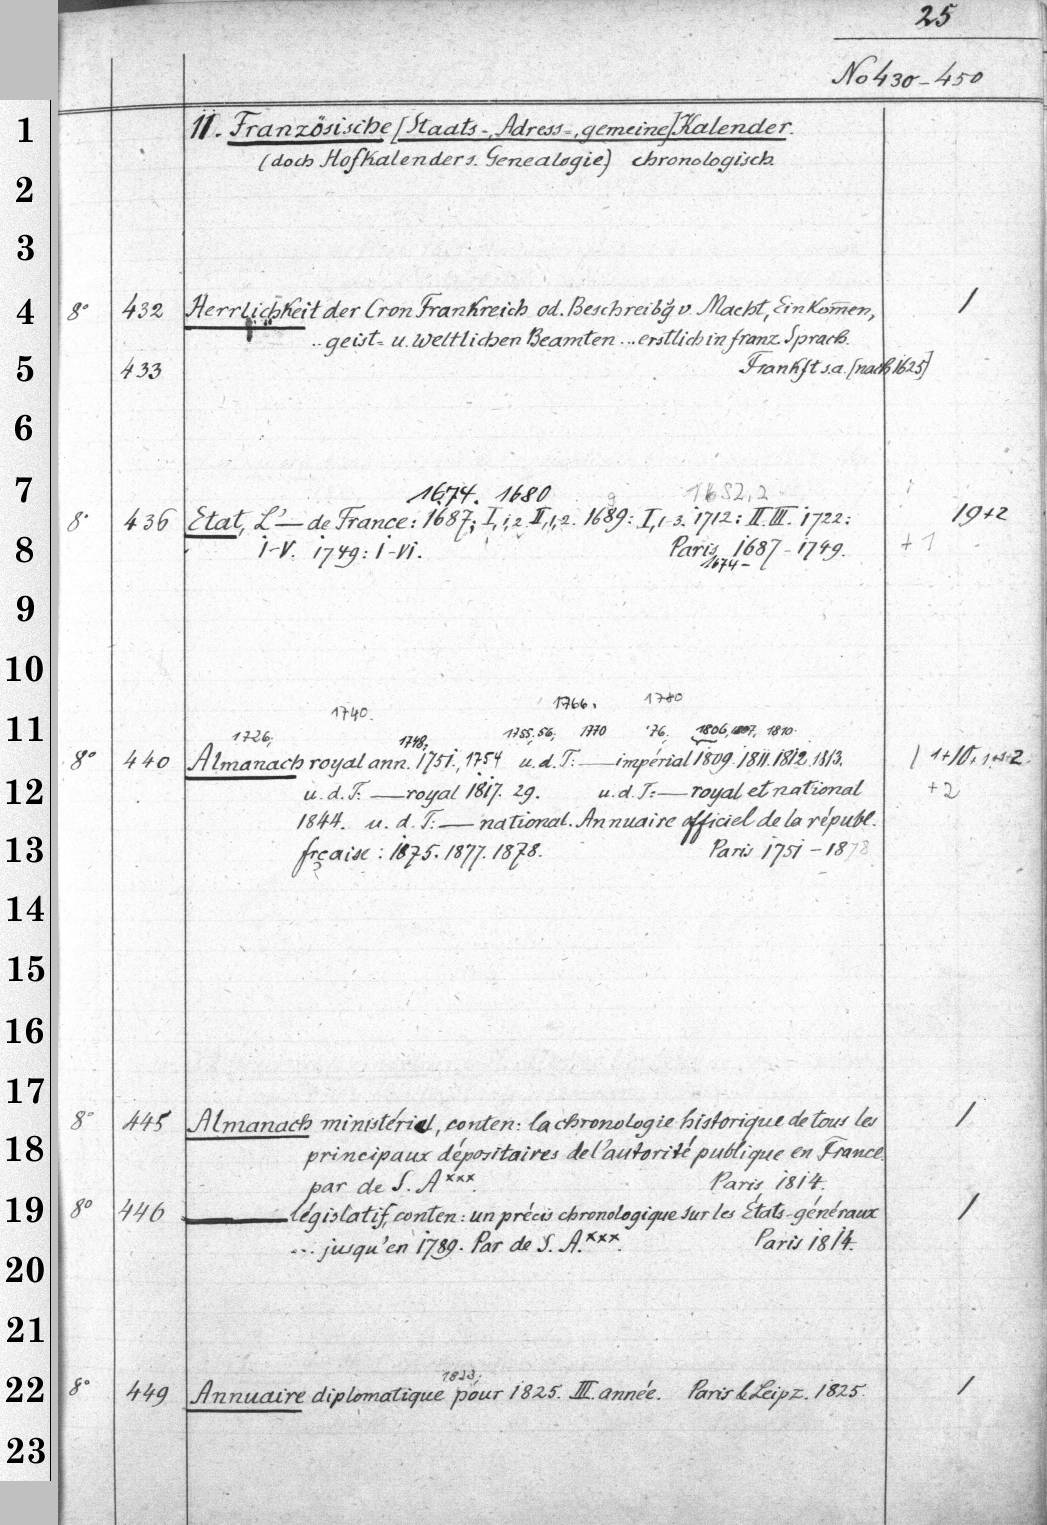 25
No 430-450
1
11. Französische [Staats-, Adress-, gemeine] Kalender.
(doch Hofkalender s. Genealogie) chronologisch
2
3
4 8° 432 Herrlichkeit der Cron Frankreich od. Beschreibg v. Macht, Einkom̄en, 1
.. geist= u. weltlichen Beamten ... erstlich in franz. Sprach.
5 433 Frankft s.a. [nach 1625]
6
7 1674. 1680 1682,2
8° 436 Etat, L'— de France: 1687; I,1,2 II,1,2. 1689: I,1-3. 1712: II. III. 1722: 19+2
8 I-V. 1749: I-VI. Paris 1687-1749. +1
1674-
9
10
1740. 1766. 1780
11 1726, 1748, 1755, 56, 1770 '76, 1806, 1807, 1810
8° 440 Almanach royal ann. 1751., 1754 u. d. T: — impérial 1809. 1811. 1812. 1813.
12 u. d. T: — royal 1817. 29. u. d. T: — royal et national +2
1844. u. d. T: — national. Annuaire officiel de la républ.
13 frçaise: 1875. 1877. 1878. Paris 1751-1878
14
15
16
17
8° 445 Almanach ministériel, conten: la chronologie historique de tous les 1
18 principaux dépositaires de l'autorité publique en France
par de S. A xxx. Paris 1814.
19 8° 446 — législatif, conten: un précis chronologique sur les États-généraux 1
... jusqu'en 1789. Par de S. A. xxx. Paris 1814.
20
21
1823,
22 8° 449 Annuaire diplomatique pour 1825. III. année. Paris & Leipz. 1825. 1
23